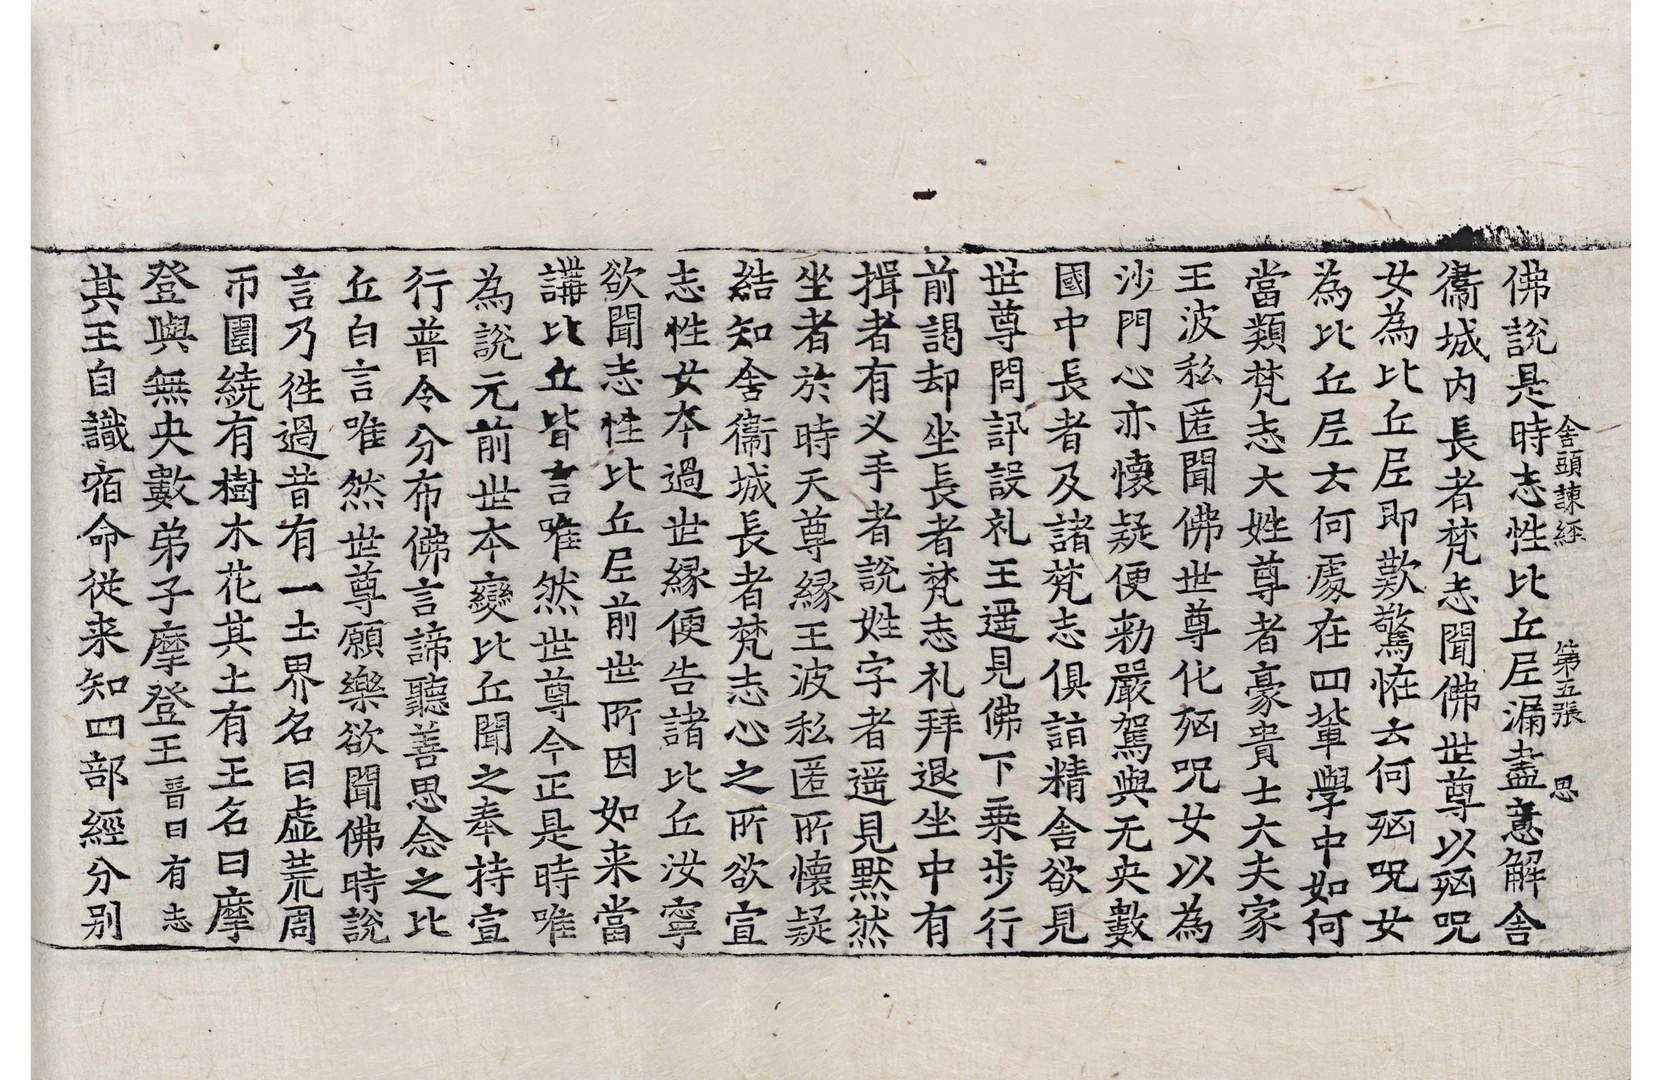 舍頭諫経　第五張　思
佛說是時志性比丘尼漏盡意解舍
衞城内長者梵志聞佛世尊以㐫呪
女為比丘尼即歎驚恠云何㐫呪女
為比丘尼云何處在四輩學中如何
當類梵志大姓尊者豪貴士大夫家
王波私匿聞佛世尊化㐫呪女以為
沙門心亦懷疑便勑嚴駕與无央數
國中長者及諸梵志俱詣精舍欲見
世尊問訊設礼王遥見佛下乗步行
前謁却坐長者梵志礼拜退坐中有
揖者有叉手者說姓字者遥見黙然
坐者於時天尊縁王波私匿所懷疑
結知舍衞城長者梵志心之所欲宣
志性女本過世縁便告諸比丘汝寧
欲聞志性比丘尼前世所因如来當
講比丘皆言唯然世尊今正是時唯
為說元前世本變比丘聞之奉持宣
行普令分布佛言諦聽善思念之比
丘白言唯然世尊願樂欲聞佛時說
言乃徃過昔有一土界名曰虚荒周
帀圍繞有樹木花其土有王名曰摩
登與無央數弟子摩登王晋曰有志
其王自識宿命従来知四部經分别